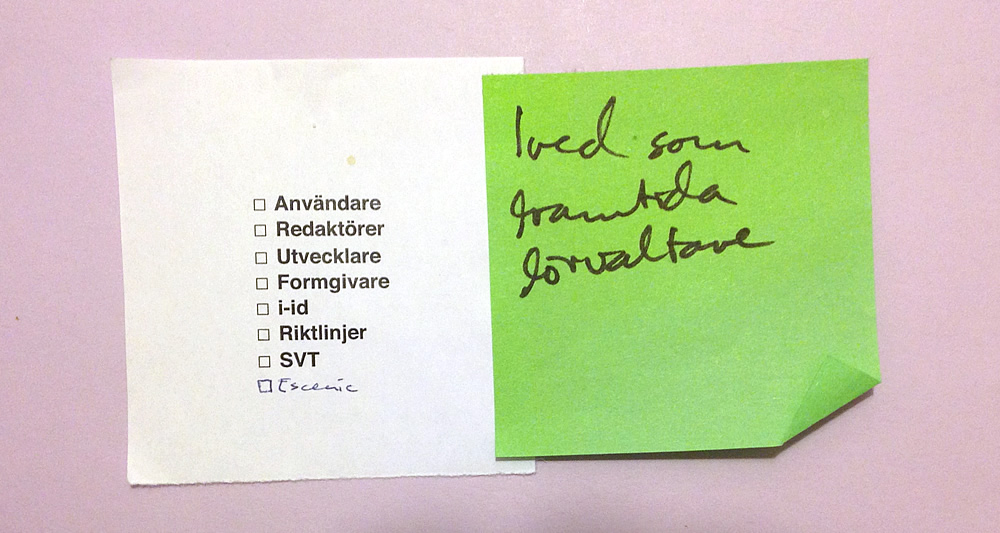 ☐ Användare
☐ Redaktörer
☐ Utvecklare
☐ Formgivare
☐ i-id
☐ Riktlinjer
☐ SVT
☐ Escenic
som
framtida
förvaltare